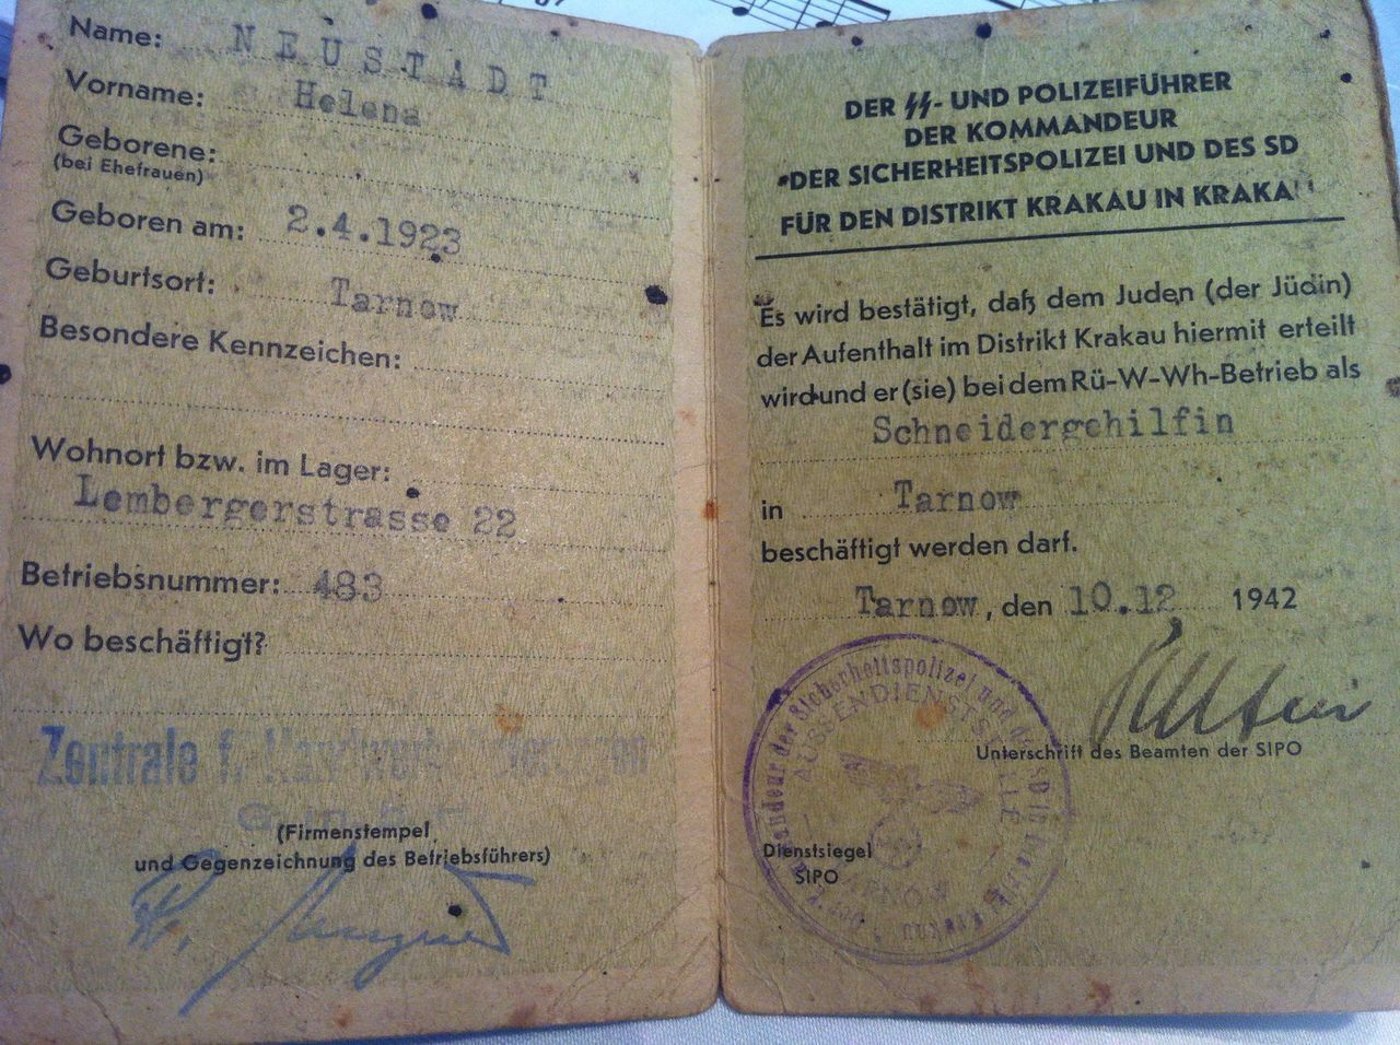 Name: NEUSTADT
Vorname: Helena
Geborene:
(bei Ehefrauen)
Geboren am: 2.4.1923
Geburtsort: Tarnow
Besondere Kennzeichen:
Wohnort bzw. im Lager:
Lembergerstrasse 22
Betriebsnummer: 483
Wo beschäftigt?
Zentrale f. Handwerkslieferungen
G.m.b.H
(Firmenstempel
und Gegenzeichnung des Betriebsführers)
DER SS- UND POLIZEIFÜHRER
DER KOMMANDEUR
DER SICHERHEITSPOLIZEI UND DES SD
FÜR DEN DISTRIKT KRAKAU IN KRAKAU
Es wird bestätigt, daß dem Juden (der Jüdin)
der Aufenthalt im Distrikt Krakau hiermit erteilt
wird und er (sie) bei dem Rü-W-Wh-Betrieb als
Schneidergehilfin
in Tarnow
beschäftigt werden darf.
Tarnow, den 10.12 1942
Unterschrift des Beamten der SIPO
Dienstsiegel
SIPO
Kommandeur der Sicherheitspolizei und des SD
AUSSENDIENSTSTELLE
TARNOW